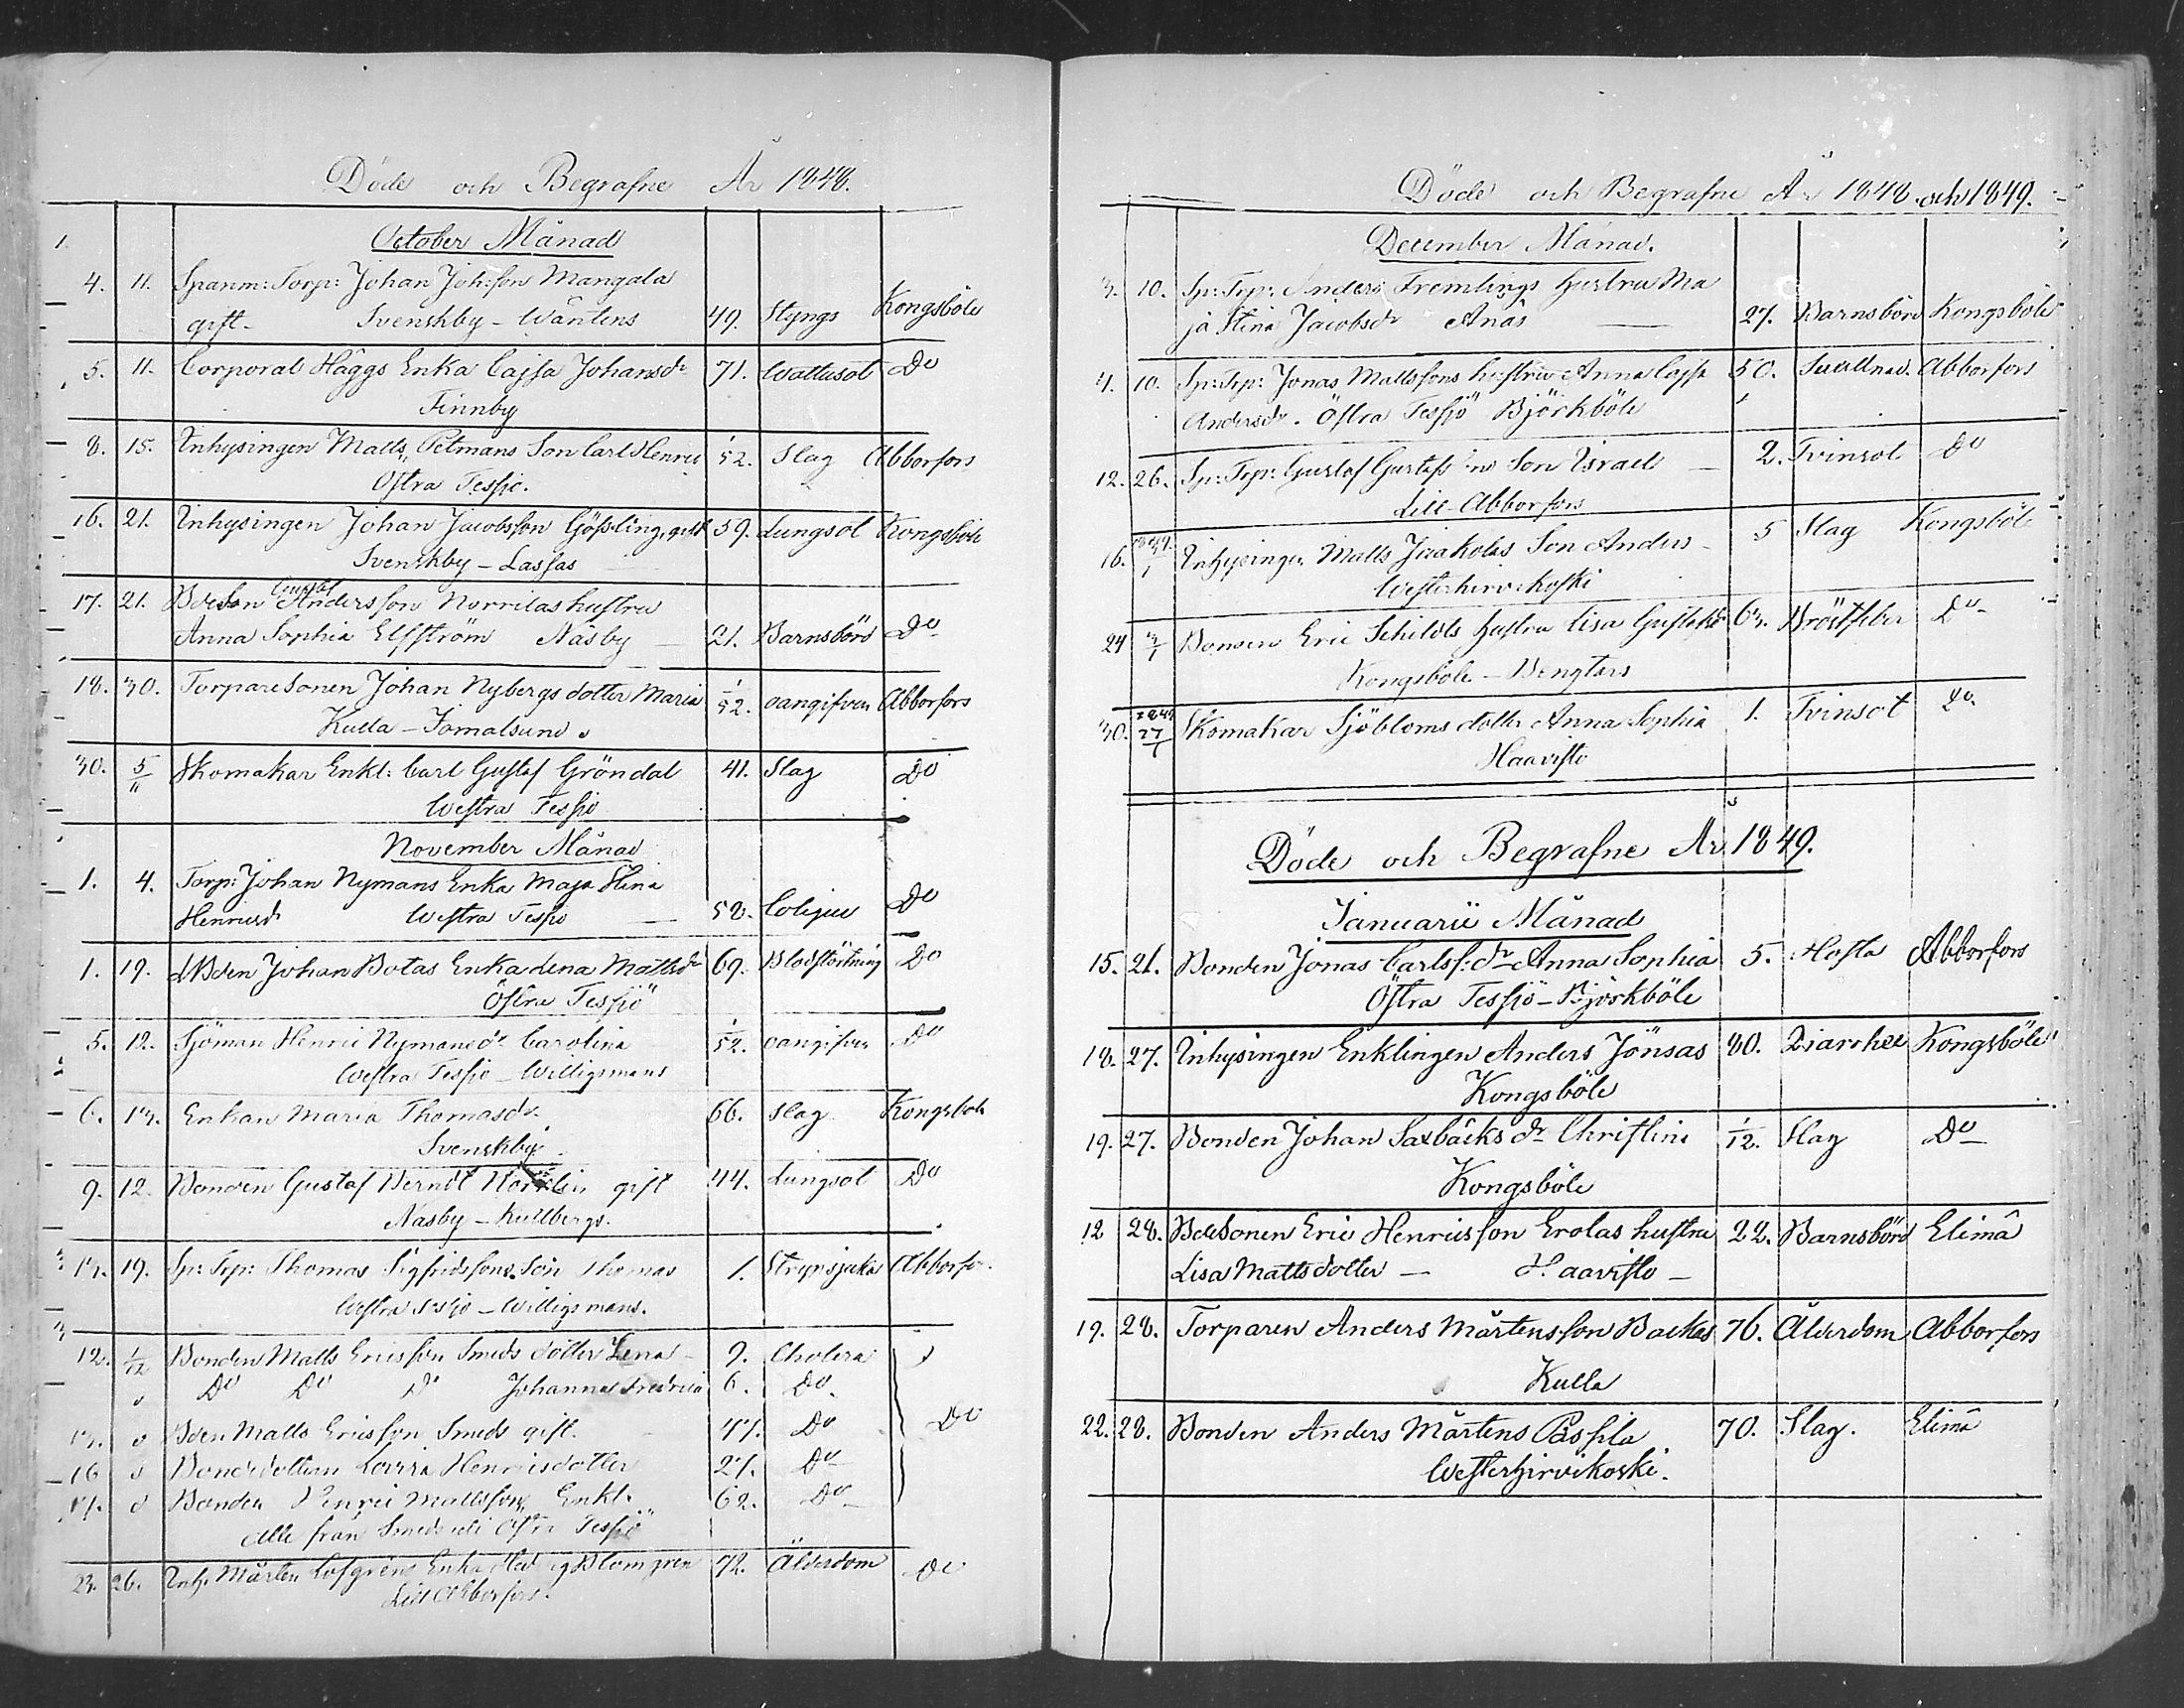 Döde och Begrafne År 1848.
October Månad
4. 11. Spanm: Torp: Johan Joh:son Mangala
gift- Svenskby - Wäntens 49. Styngs Kongsböle
5. 11. Corporal Häggs Enka Cajsa Johansdr 71. Wattusot Do
Finnby
8. 15. Inhysingen Matts Petmans Son Carl Henric 1/52. Slag Abborfors
Östra Tessjö.
16. 21. Inhysingen Johan Jacobsson Gössling, gift 59. Lungsot Kongsböle
Svenskby - Lassas
Gustaf
17. 21. BdeSon Andersson Norrilas hustru
Anna Sophia Elfström Näsby 21. Barnsbörd Do
18. 30. TorpareSonen Johan Nybergs dotter Maria 1/52. oangifven Abborfors
Kulla - Jomalsund
30. 5/11 Skomakar Enkl: Carl Gustaf Gröndal 41. Slag Do
Westra Tessjö
November Månad
1. 4. Torp: Johan Nymans Enka Maja Stina
Henricsdr Westra Tessjö 58. Colique Do
1. 19. Bden Johan Botas Enka Lena Mattsdr 69. Blodstörtning Do
Östra Tessjö
5. 12. Sjöman Henric Nymans dr Carolina 1/52. oangifven Do
Westra Tessjö - Willigsmans
6. 13. Enkan Maria Thomasdr 66. Slag Kongsböle
Svenskby
9. 12. Bonden Gustaf Berndt gift 44. Lungsot Do
Näsby - Kullbergs.
13. 19. Sp: Trp: Thomas Sigfridssons Son Thomas 1. Strypsjuka Abborfors
Westra Tessjö - Willigsmans.
12. 1/12 Bonden Matts Ericsson Smeds dotter Lena 9. Cholera
Do Do Do Johanna Fredrica 6. Do
13. Bden Matts Ericsson Smeds gift. 47. Do Do
16 Bondedottren Lovisa Henricsdotter 27. Do
17. Bonden Henric Mattsson Enkl. 62. Do
Alle från Smeds uti Östra Tessjö
23. 26. Inh. Mårten Löfgrens Enka Hedvig Blomgren 72. Ålderdom Do
Lill Abborfors.
Döde och Begrafne År 1848 och 1849.
December Månad.
3. 10. Sp: Trp: Anders Fremlings Hustru Ma
ja Stina Jacobsdr Anäs 27. Barnsbörd Kongsböle
4. 10. Sp: Trp: Jonas Mattssons hustru Anna Cajsa 50. Abborfors
Andersdr. Östra Tessjö Björkböle
12. 26. Sp: Trp: Gustaf Gustafsons Son Israel 2. Tvinsot Do
Lill-Abborfors
16. 1849 3/1 Inhysingen Matts Jaakolas Son Anders 5 Slag Kongsböle
Westerhirvikoski
24 3/1 Bonden Eric Schildts Hustru Lisa Gustafsdr 63. Bröstfeber Do
Kongsböle - Bengtars
30. 1849 27/1 Skomakar Sjöbloms dotter Anna Sophia 1. Tvinsot Do
Haavisto
Döde och Begrafne År 1849.
Januarii Månad
15. 21. Bonden Jonas Carlss: dr Anna Sophia 5. Hosta Abborfors
Östra Tessjö - Björkböle
18. 27. Inhysingen Enklingen Anders Jönsas 80. Diarrhee Kongsböle
Kongsböle
19. 27. Bonden Johan Saxbäcks dr Christina 1/12. Slag Do
Kongsböle
12 28. BdeSonen Eric Henricsson Erolas hustru 22. Barnsbörd Elimä
Lisa Mattsdotter - Haavisto -
19. 28. Torparen Anders Mårtensson Backas 76. Ålderdom Abborfors
Kulla
22. 28. Bonden Anders Mårtens Passila 70. Slag. Elimä
Westerhirvikoski.